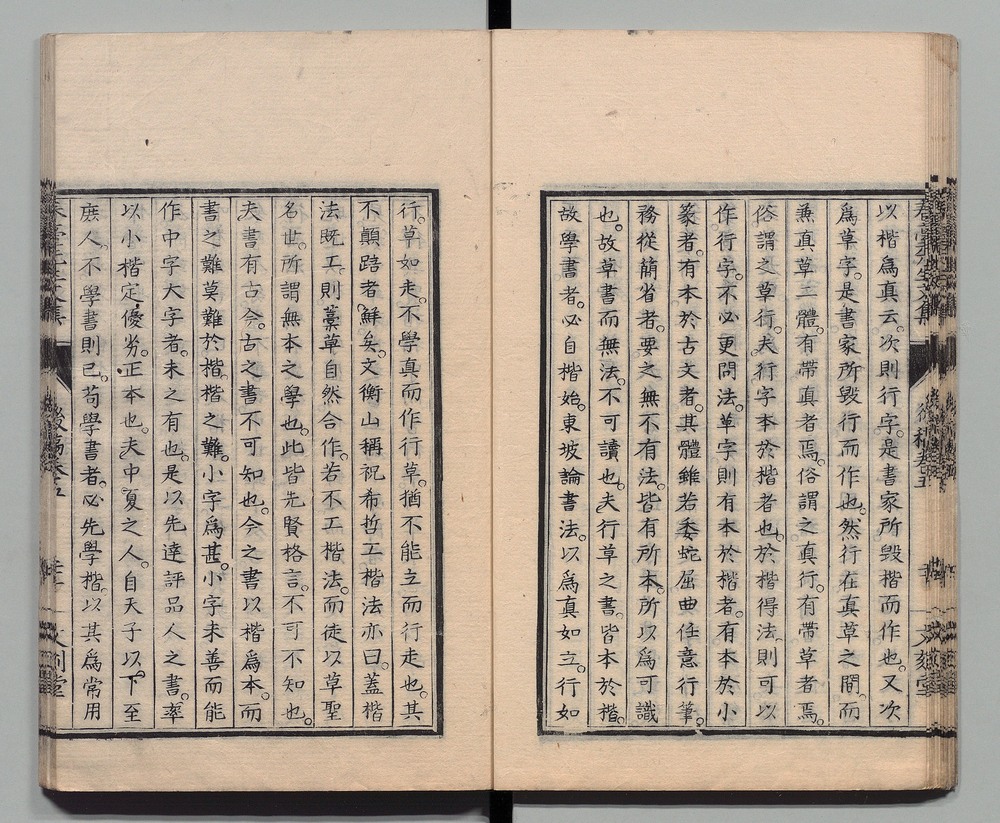 以楷為真云。次則行字。是書家所毀楷而作也。又次
為草字。是書家所毀行而作也。然行在真草之間。而
兼真草二體。有帶真者焉。俗謂之真行。有帶草者焉。
俗謂之草行。夫行字本於楷者也。於楷得法。則可以
作行字。不必更問法。草字則有本於楷者。有本於小
篆者。有本於古文者。其體雖若委蛇屈曲任意行筆。
務從簡省者。要之無不有法。皆有所本。所以為可識
也。故草書而無法。不可讀也。夫行草之書。皆本於楷。
故學書者。必自楷始。東坡論書法。以為真如立。行如
行。草如走。不學真而作行草。猶不能立而行走也。其
不顛踣者。鮮矣。文衡山稱祝布哲工楷法亦曰。蓋楷
法既工。則藁草自然合作。若不工楷法。而徒以草聖
名世。所謂無本之學也。此皆先賢格言。不可不知也。
夫書有古今。古之書不可知也。今之書以楷為本。而
書之難莫難於楷。楷之難。小字為甚。小字未善而能
作中字大字者。未之有也。是以先達評品人之書。率
以小楷定優劣。正本也。夫中夏之人。自天子以下至
庶人。不學書則已。苟學書者。必先學楷。以其為常用
後稿卷五